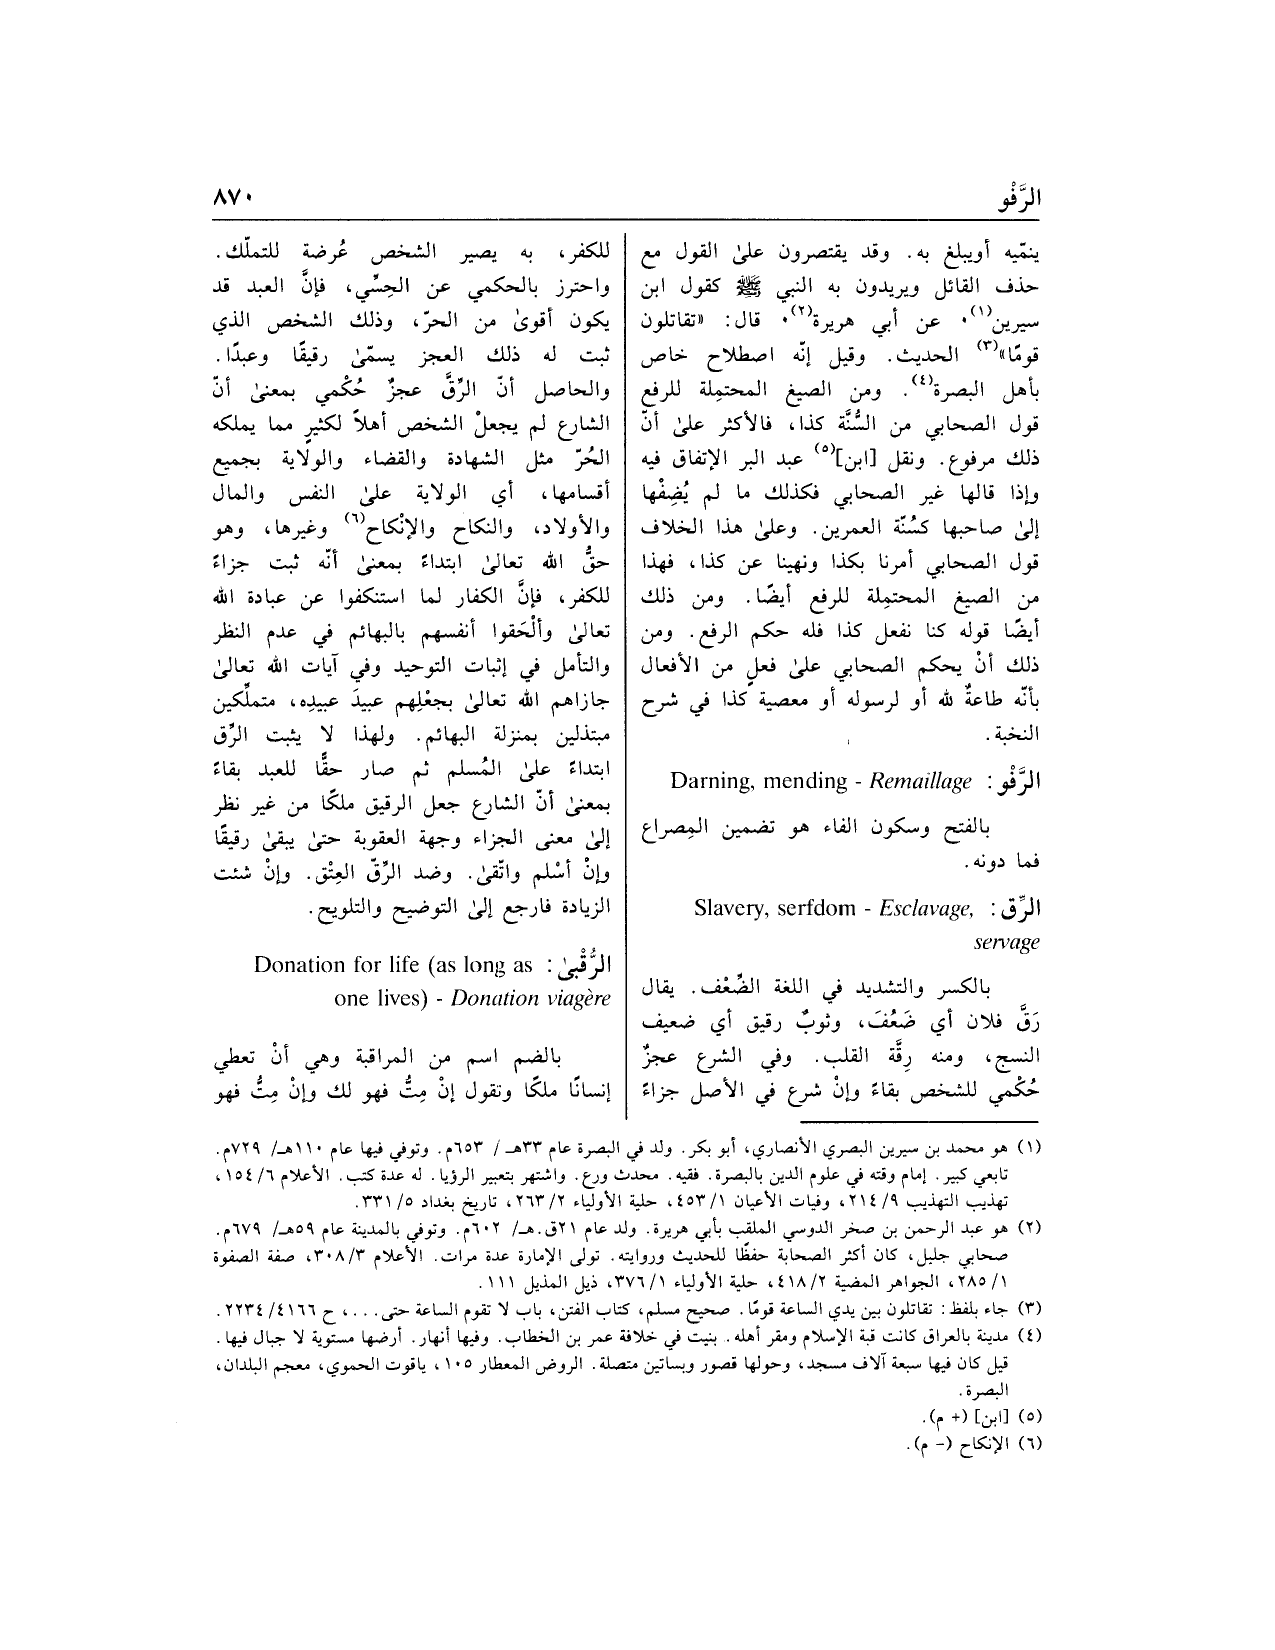 الرَّفْو
٨٧٠
ينمّيه أويبلغ به. وقد يقتصرون علىٰ القول مع
حذف القائل ويريدون به النبي ﷺ كقول ابن
سيرين(١). عن أبي هريرة(٢). قال: «تقاتلون
قومًا»(٣) الحديث. وقيل إنّه اصطلاح خاص
بأهل البصرة(٤). ومن الصيغ المحتمِلة للرفع
قول الصحابي من السُّنَّة كذا، فالأكثر علىٰ أنّ
ذلك مرفوع. ونقل [ابن](٥) عبد البر الإتفاق فيه
وإذا قالها غير الصحابي فكذلك ما لم يُضِفْها
إلىٰ صاحبها كسُنّة العمرين. وعلىٰ هذا الخلاف
قول الصحابي أمرنا بكذا ونهينا عن كذا، فهذا
من الصيغ المحتمِلة للرفع أيضًا. ومن ذلك
أيضًا قوله كنا نفعل كذا فله حكم الرفع. ومن
ذلك أنْ يحكم الصحابي علىٰ فعلٍ من الأفعال
بأنّه طاعةٌ لله أو لرسوله أو معصية كذا في شرح
النخبة.
الرَّفْو: Darning, mending - Remaillage
بالفتح وسكون الفاء هو تضمين المِصراع
فما دونه.
الرِّق: Slavery, serfdom - Esclavage,
servage
بالكسر والتشديد في اللغة الضِّعْف. يقال
رَقَّ فلان أي ضَعُفَ، وثوبٌ رقيق أي ضعيف
النسج، ومنه رِقَّة القلب. وفي الشرع عجزٌ
حُكْمي للشخص بقاءً وإنْ شرع في الأصل جزاءً
للكفر، به يصير الشخص عُرضة للتملّك.
واحترز بالحكمي عن الحِسِّي، فإنَّ العبد قد
يكون أقوىٰ من الحرّ، وذلك الشخص الذي
ثبت له ذلك العجز يسمّىٰ رقيقًا وعبدًا.
والحاصل أنّ الرِّقَّ عجزٌ حُكْمي بمعنىٰ أنّ
الشارع لم يجعلْ الشخص أهلاً لكثيرٍ مما يملكه
الحُرّ مثل الشهادة والقضاء والولاية بجميع
أقسامها، أي الولاية علىٰ النفس والمال
والأولاد، والنكاح والإنْكاح(٦) وغيرها، وهو
حقُّ الله تعالىٰ ابتداءً بمعنىٰ أنّه ثبت جزاءً
للكفر، فإنَّ الكفار لما استنكفوا عن عبادة الله
تعالىٰ وألْحَقوا أنفسهم بالبهائم في عدم النظر
والتأمل في إثبات التوحيد وفي آيات الله تعالىٰ
جازاهم الله تعالىٰ بجعْلِهم عبيدَ عبيدِه، متملّكين
مبتذلين بمنزلة البهائم. ولهذا لا يثبت الرِّق
ابتداءً علىٰ المُسلم ثم صار حقًّا للعبد بقاءً
بمعنىٰ أنّ الشارع جعل الرقيق ملكًا من غير نظر
إلىٰ معنى الجزاء وجهة العقوبة حتىٰ يبقىٰ رقيقًا
وإنْ أسْلم واتّقىٰ. وضد الرِّقّ العِتْق. وإنْ شئت
الزيادة فارجع إلىٰ التوضيح والتلويح.
الرُّقْبىٰ: Donation for life (as long as
one lives) - Donation viagère
بالضم اسم من المراقبة وهي أنْ تعطي
إنسانًا ملكًا وتقول إنْ مِتُّ فهو لك وإنْ مِتُّ فهو
(١) هو محمد بن سيرين البصري الأنصاري، أبو بكر. ولد في البصرة عام ٣٣هـ / ٦٥٣م. وتوفي فيها عام ١١٠هـ/ ٧٢٩م.
تابعي كبير. إمام وقته في علوم الدين بالبصرة. فقيه. محدث ورع. واشتهر بتعبير الرؤيا. له عدة كتب. الأعلام ٦/ ١٥٤،
تهذيب التهذيب ٩/ ٢١٤، وفيات الأعيان ١/ ٤٥٣، حلية الأولياء ٢/ ٢٦٣، تاريخ بغداد ٥/ ٣٣١.
(٢) هو عبد الرحمن بن صخر الدوسي الملقب بأبي هريرة. ولد عام ٢١ق.هـ/ ٦٠٢م. وتوفي بالمدينة عام ٥٩هـ/ ٦٧٩م.
صحابي جليل، كان أكثر الصحابة حفظًا للحديث وروايته. تولى الإمارة عدة مرات. الأعلام ٣/ ٣٠٨، صفة الصفوة
١/ ٢٨٥، الجواهر المضية ٢/ ٤١٨، حلية الأولياء ١/ ٣٧٦، ذيل المذيل ١١١.
(٣) جاء بلفظ: تقاتلون بين يدي الساعة قومًا. صحيح مسلم، كتاب الفتن، باب لا تقوم الساعة حتى...، ح ٤١٦٦/ ٢٢٣٤.
(٤) مدينة بالعراق كانت قبة الإسلام ومقر أهله. بنيت في خلافة عمر بن الخطاب. وفيها أنهار. أرضها مستوية لا جبال فيها.
قيل كان فيها سبعة آلاف مسجد، وحولها قصور وبساتين متصلة. الروض المعطار ١٠٥، ياقوت الحموي، معجم البلدان،
البصرة.
(٥) [ابن] (+ م).
(٦) الإنكاح (- م).